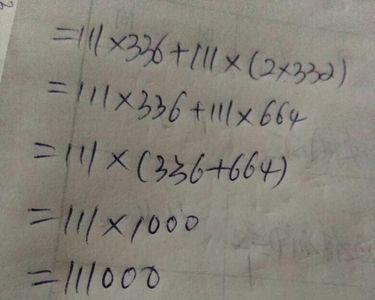 =111×336+111×(2×332)
=111×336+111×664
=111×(336+664)
=111×1000
=111000